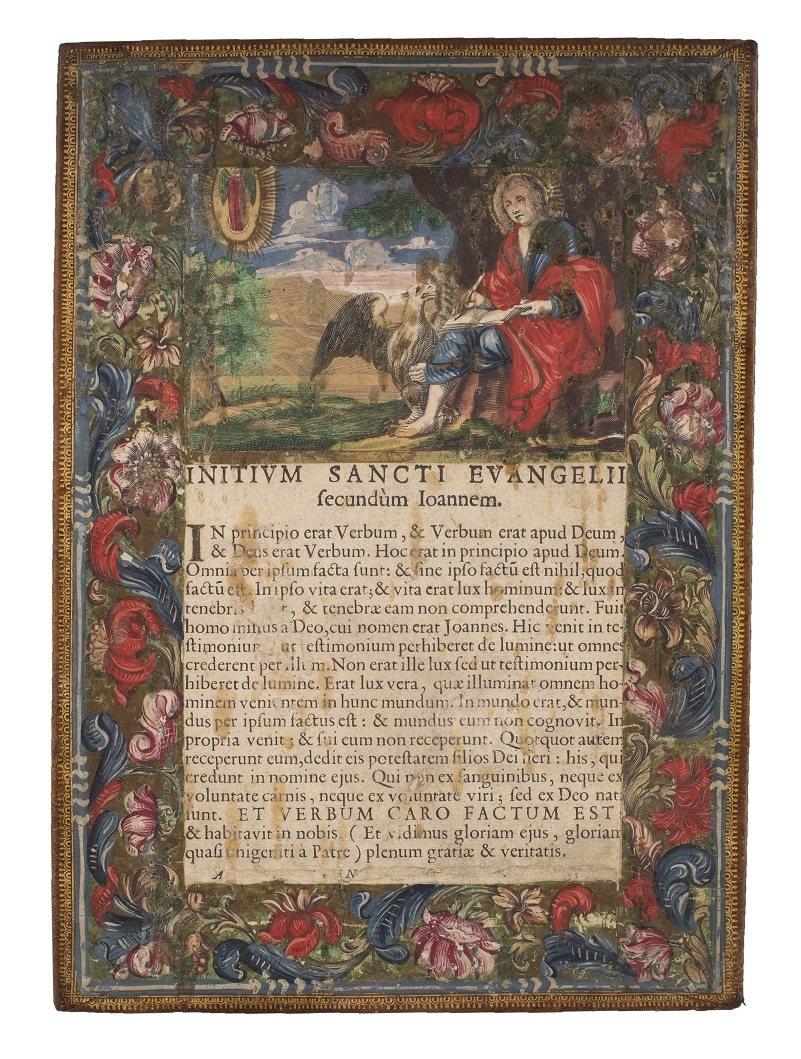 INITIVM SANCTI EVANGELII
ſecundùm Ioannem.
IN principio erat Verbum, & Verbum erat apud Deum,
& Deus erat Verbum. Hoc erat in principio apud Deum.
Omnia per ipſum facta ſunt: & ſine ipſo factũ eſt nihil, quod
factũ eſt. In ipſo vita erat; & vita erat lux hominum: & lux in
& tenebræ eam non comprehenderunt. Fuit
homo miſſus a Deo, cui nomen erat Joannes. Hic venit in te-
ut teſtimonium perhiberet de lumine: ut omnes
crederent per illum. Non erat ille lux ſed ut teſtimonium per-
hiberet de lumine. Erat lux vera, quæ illuminat omnem ho-
minem venientem in hunc mundum. In mundo erat, & mun-
dus per ipſum factus eſt: & mundus eum non cognovit. In
propria venit; & ſui eum non receperunt. Quotquot autem
receperunt eum, dedit eis poteſtatem filios Dei fieri: his, qui
credunt in nomine ejus. Qui non ex ſanguinibus, neque ex
voluntate carnis, neque ex voluntate viri; ſed ex Deo nati
ſunt. ET VERBUM CARO FACTUM EST
& habitavit in nobis. (Et vidimus gloriam ejus, gloriam
quaſi unigeniti à Patre) plenum gratiæ & veritatis.